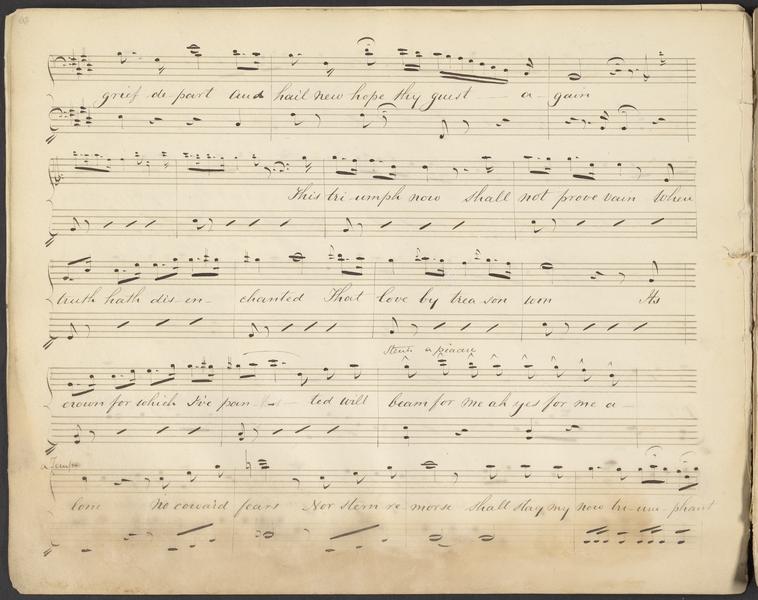 grief de-part and hail new hope thy guest a-gain
This tri-umph now shall not prove vain When
truth hath dis-en-chanted That love by trea-son won Its
crown for which I've pan-ted will beam for me ah yes for me a-
a Tempo
lone No coward fears Nor stern re-morse shall stay my now tri-um-phant